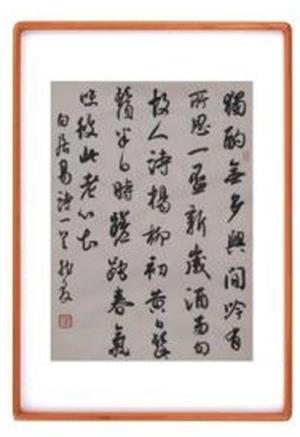 獨酌無多興閒吟有
所思一盃新歲酒兩句
故人詩楊柳初黃日髭
鬚半白時蹉跎春氣
味彼此老心知
白居易詩一首